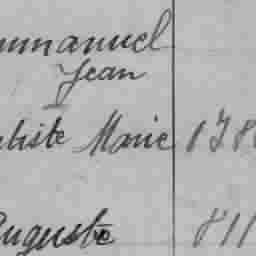 mmanuel
Jean
tiste Marie 178
Auguste 811